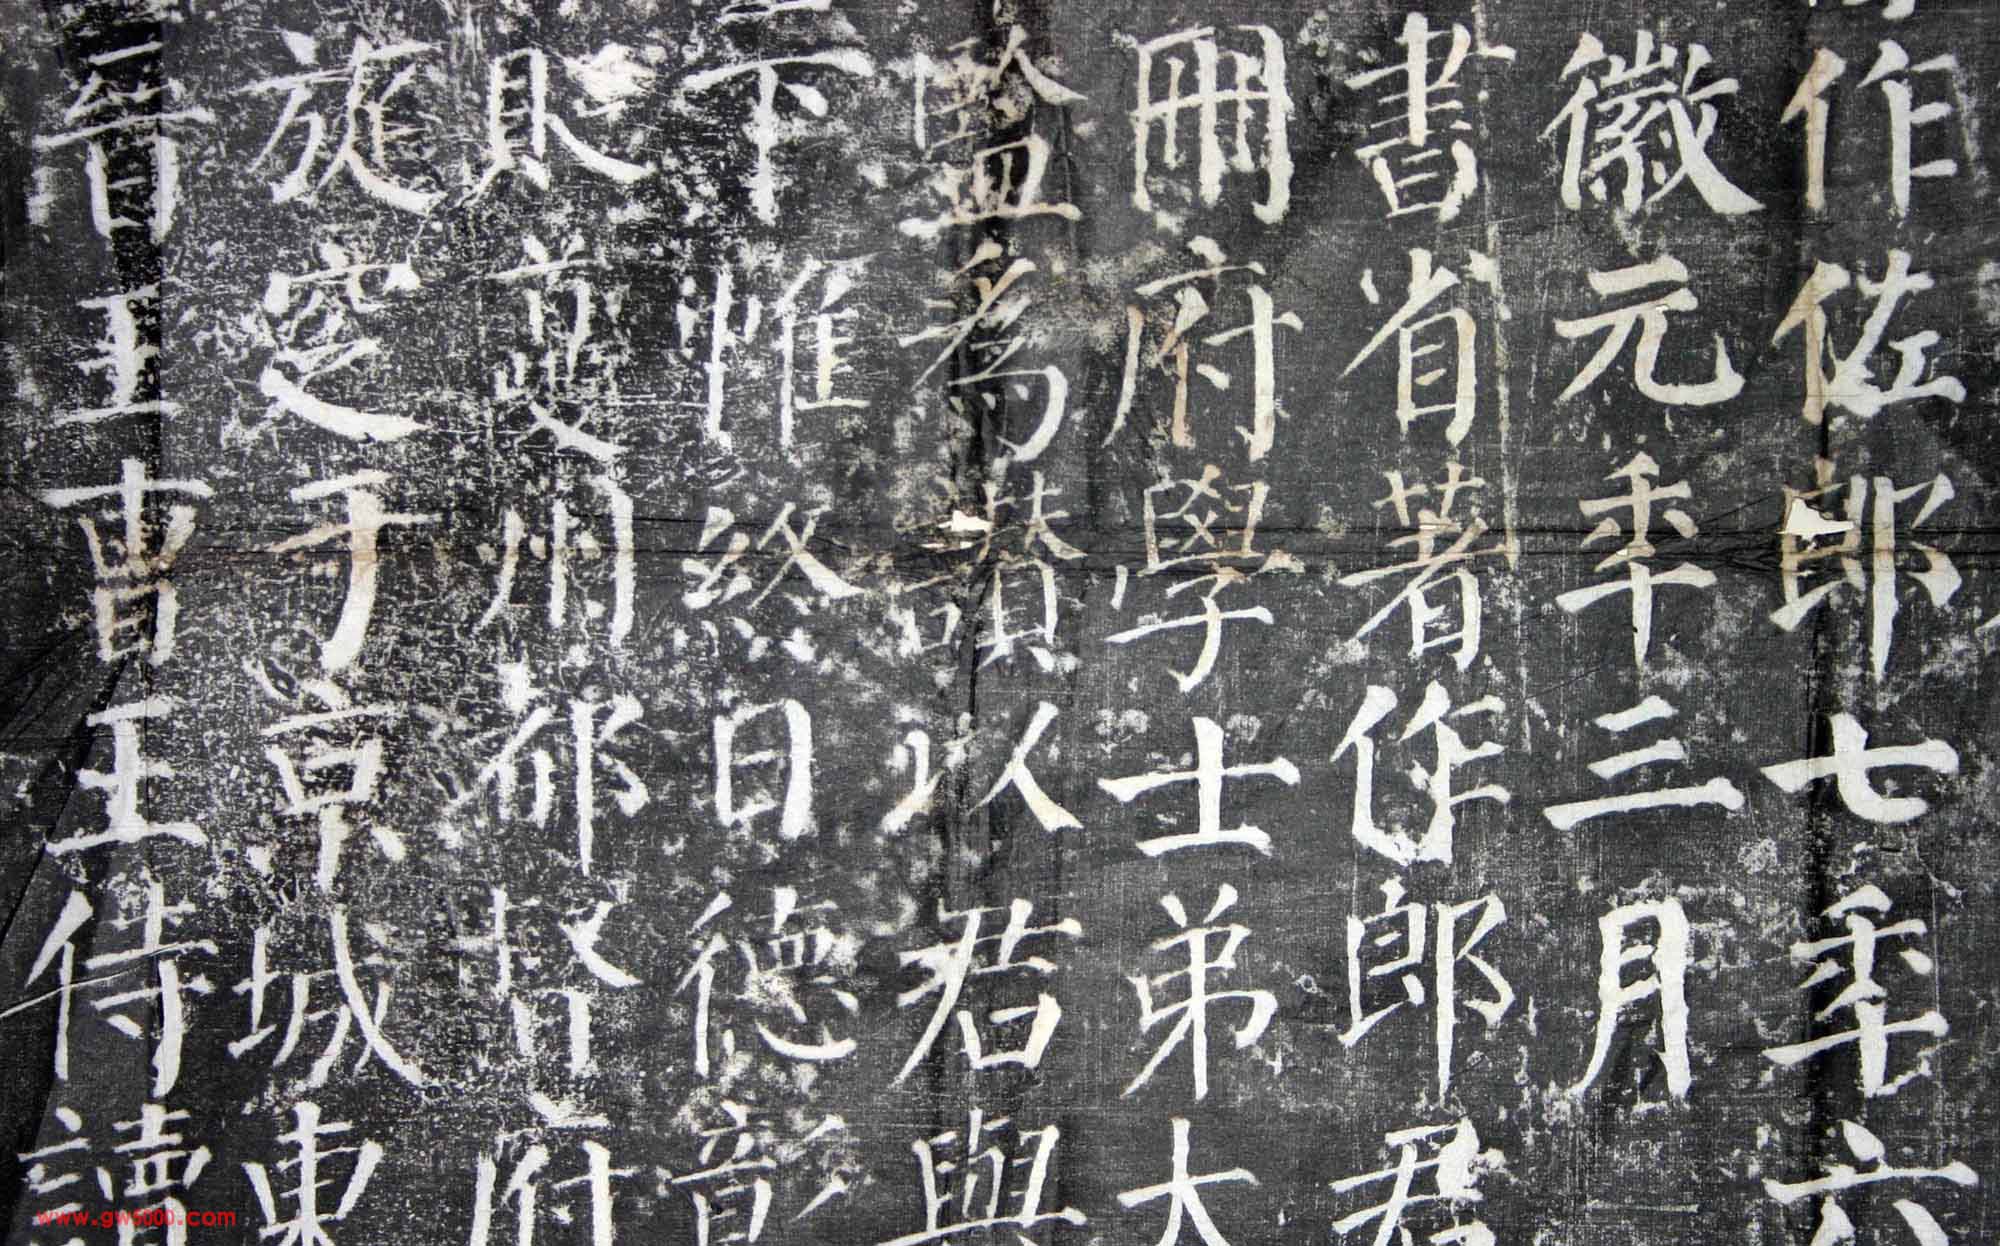 作佐郎七年六
徽元年三月
書省著作郎君
冊府學士弟
監為讚以君與
下帷終日德彰
則夔州都督府
旋窆于京城東
晉王曹王侍讀
www.gw5000.com